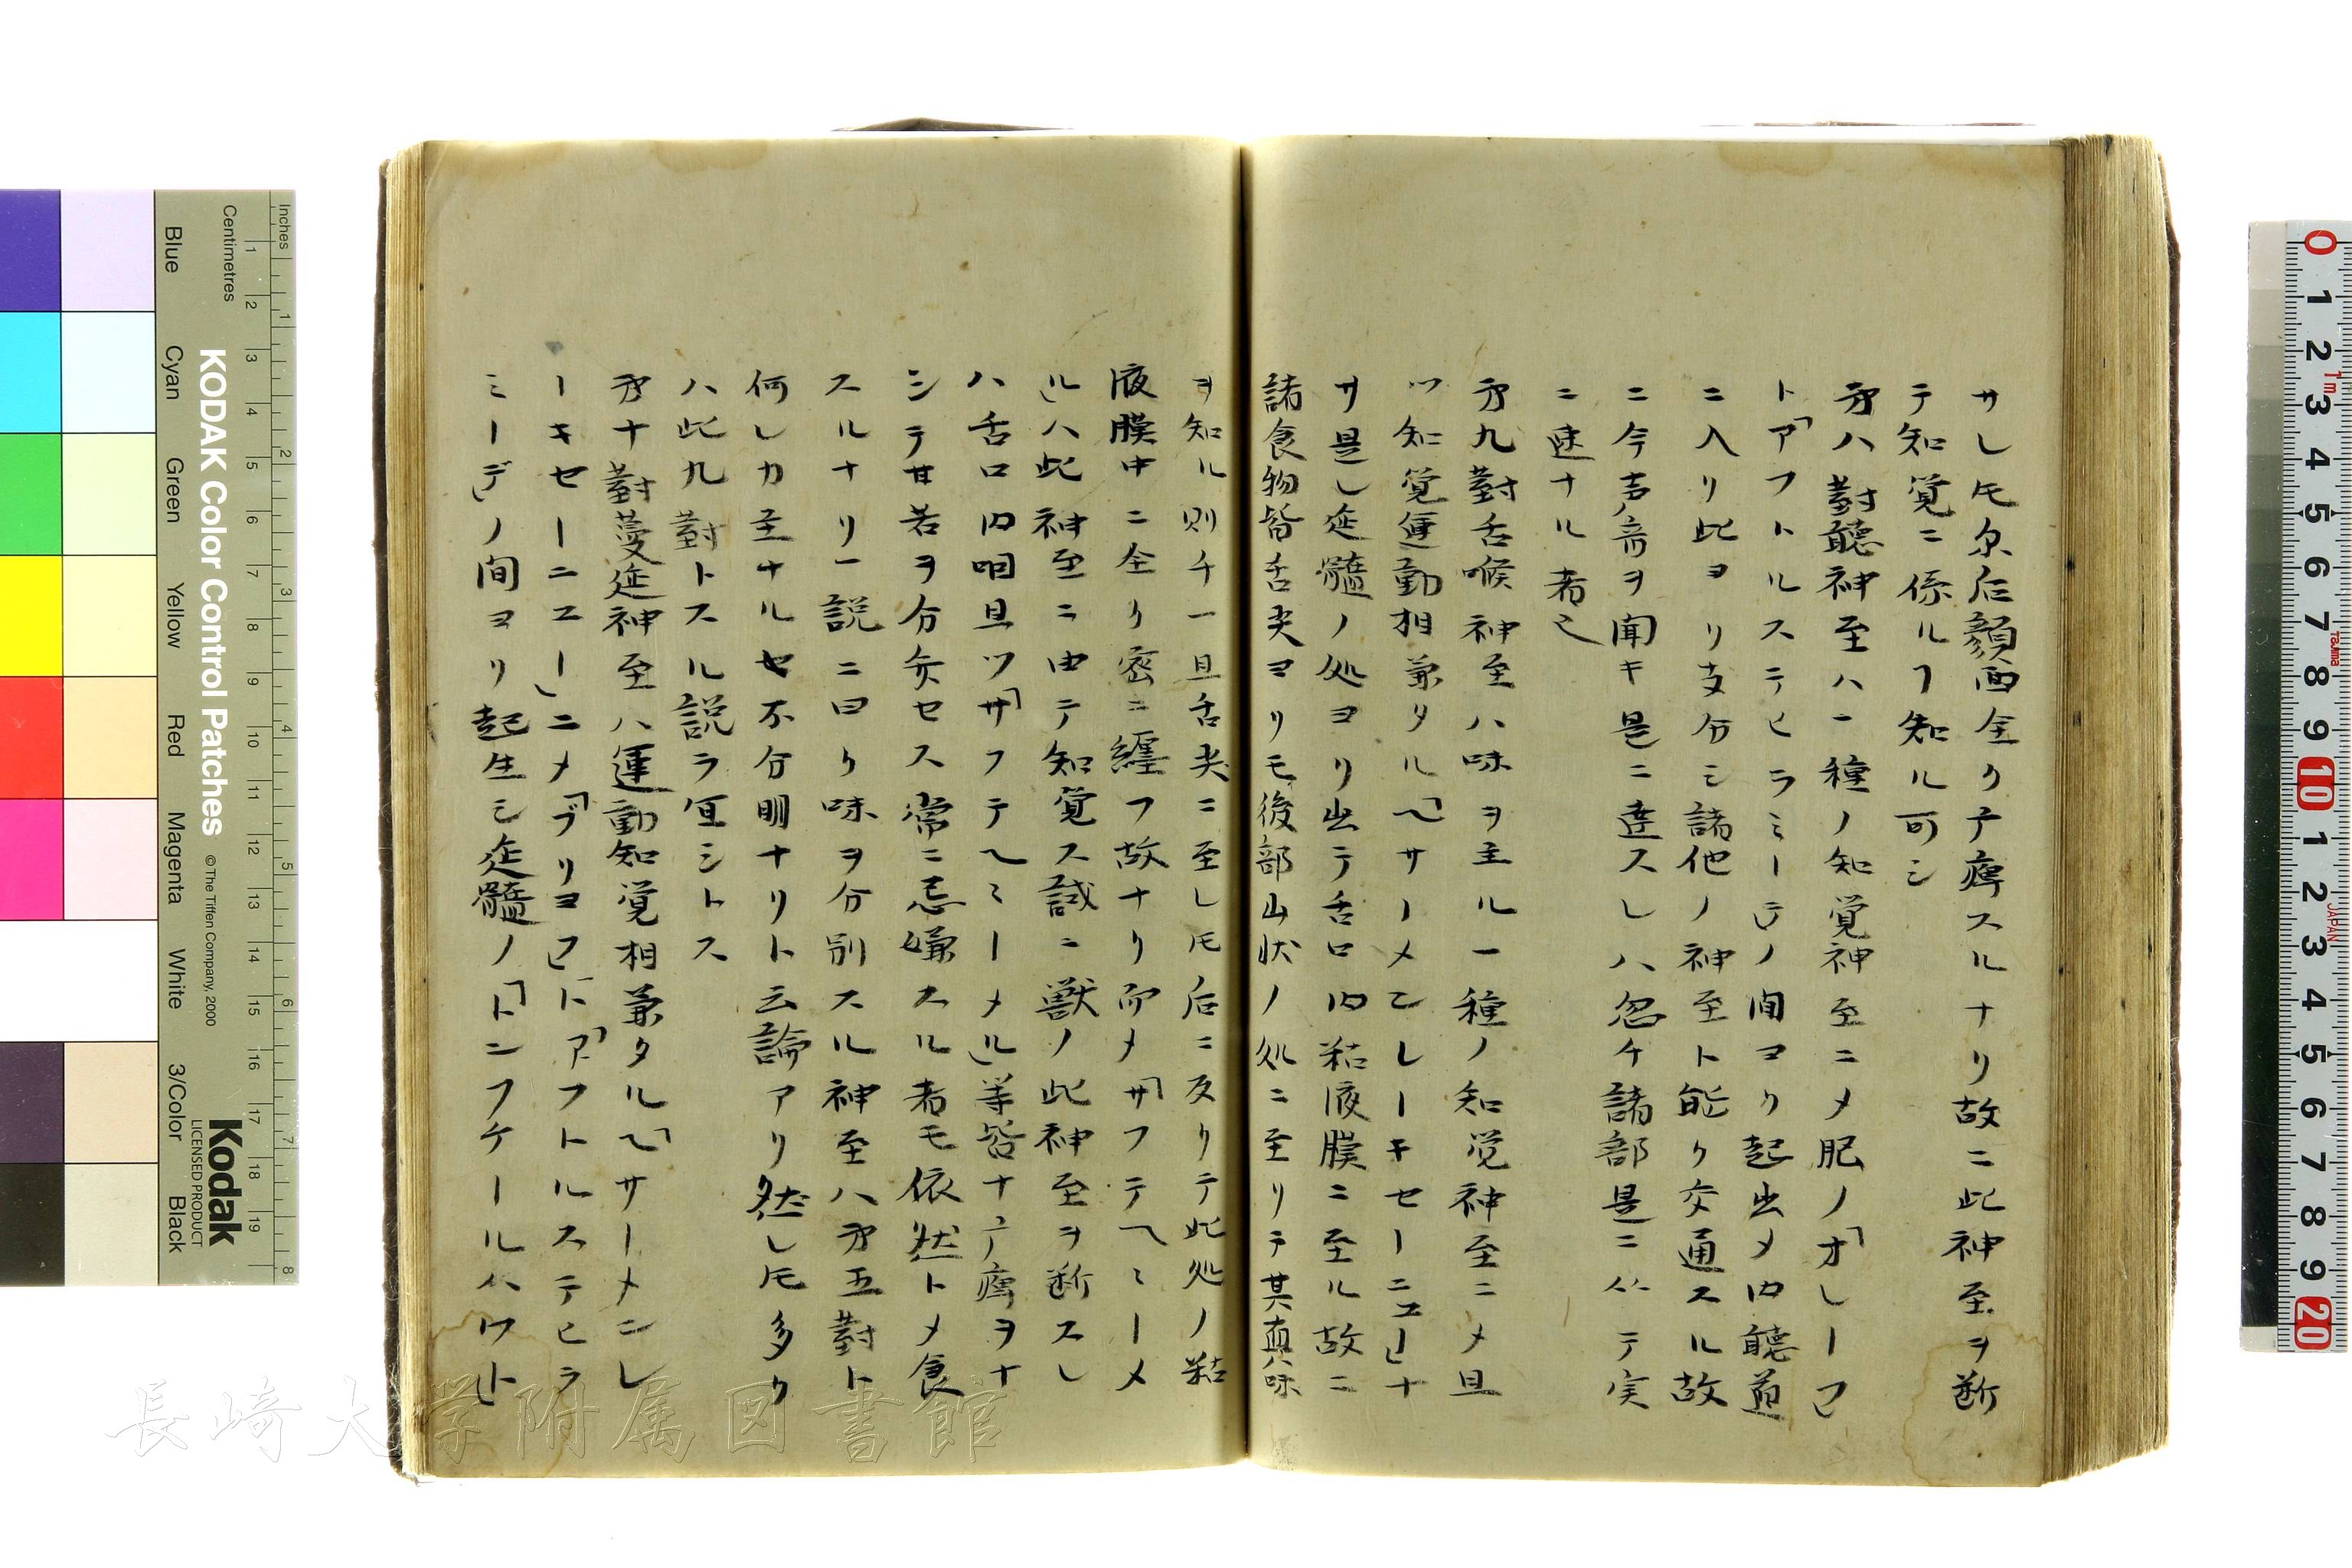 サレ𪜈尓后顔面全ク子痺スルナリ故ニ此神至ヲ断
テ知覚ニ係ルヿ知ル可シ
第八對聴神至ハ一種ノ知覚神至ニメ肥ノ「オレーフ」
ト「アフトルステヒラミーデ」ノ間ヨリ起出メ内聴道
ニ入リ此ヨリ支分シ諸他ノ神至ト能ク交通スル故
ニ今声音ヲ聞キ是ニ達スレハ忽チ諸部是ニ𠆢テ実
ニ速ナル者也
第九對舌喉神至ハ味ヲ主ル一種ノ知覚神至ニメ且
ツ知覚運動相兼タル「ヘサーメンレーキセーニュー」ナ
サ是レ延髓ノ処ヨリ出テ舌口内粘液膜ニ至ル故ニ
諸食物皆舌尖ヨリモ後部山状ノ処ニ至リテ其真味
ヲ知ル則チ一旦舌尖ニ至レ𪜈后ニ反リテ此処ノ粘
液膜中ニ全ク密ニ纏フ故ナリ而メ「サフテヘミーメ
ル」ハ此神至ニ由テ知覚ス試ニ獣ノ此神至ヲ断スレ
ハ舌口内咽且ツ「サフテヘミーメル」等皆ナ子痺ヲナ
シテ甘苦ヲ分弁セス常ニ忌嫌スル者モ依然トメ食
スルナリ一説ニ曰ク味ヲ分別スル神至ハ第五對ト
何レカ主ナルセ不分明ナリト云論アリ然レ𪜈多ク
ハ此九對トスル説ヲ宜シトス
第十對蔓延神至ハ運動知覚相兼タル「ヘサーメンレ
ーキセーニユー」ニメ「ブリヨフ」ト「アフトルステヒラ
ミーデ」ノ間ヨリ起生シ延髓ノ「トンフケールハウト」
Inches
Centimetres
Blue
Cyan
Green
Yellow
Red
Magenta
White
3/Color
Black
KODAK Color Control Patches
© The Tiffen Company, 2000
Kodak
LICENSED PRODUCT
長崎大学附属図書館